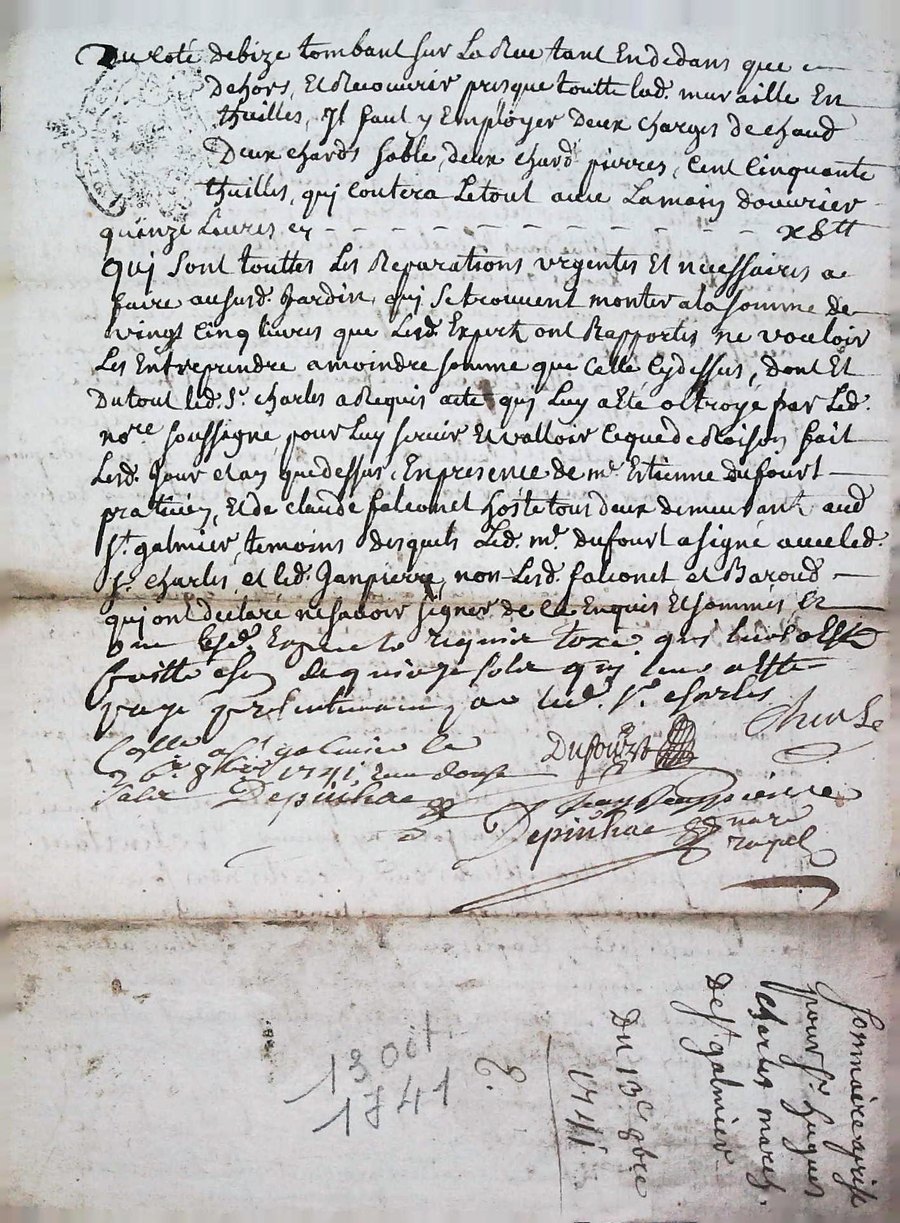 Du coté debize tombant sur La Rue tant Endedans que
dehors, Et Recouvrir presque toutte lad. muraille En
thuilles, Il faut y Employer Deux charges de chaud
Deux chards sable, deux chard. pierres, Cent Cinquante
thuilles, quj coutera Letout avec Lamain douvrier
quinze Livres cy - - - - - - - - - - - xv tt
Quj sont touttes Les Reparations urgentes Et necessaires a
faire aususd. Jardin, quj setrouvent monter ala somme de
vingt Cinq livres que Lesd. Expertz ont Rapportés ne vouloir
Les Entreprendre amoindre somme que Celle Cydessus, dont Et
Dutout led. Sr. charles a Requis acte quj Luy a Eté oltroyé par Led.
nore. soussigné, pour Luy servir Et valloir Cequede Raison fait
Lesd. Jour et an quedessus, En presence de me. Estienne Dufourt
praticien, Et de claude falconet hoste tous deux demeurant aud.
St. galmier, temoins desquels Led. me. Dufourt a signé avec led.
Sr. charles, et led. Janpierre, non Lesd. falconet et Baroud
quj ont declaré ne savoir signer de ce Enquis Et sommés, Et
taxe quj
sols quj
par led. Sr. charles
galmier le
8bre 1741
Depinhac
Dufourt
Charle
Janpierre
Depinhac nore
royal
Sommaire aprise
pour Sr. hugues
charles march.
De St galmier
Du 13e 8bre
1741
13 Oct
1741
?